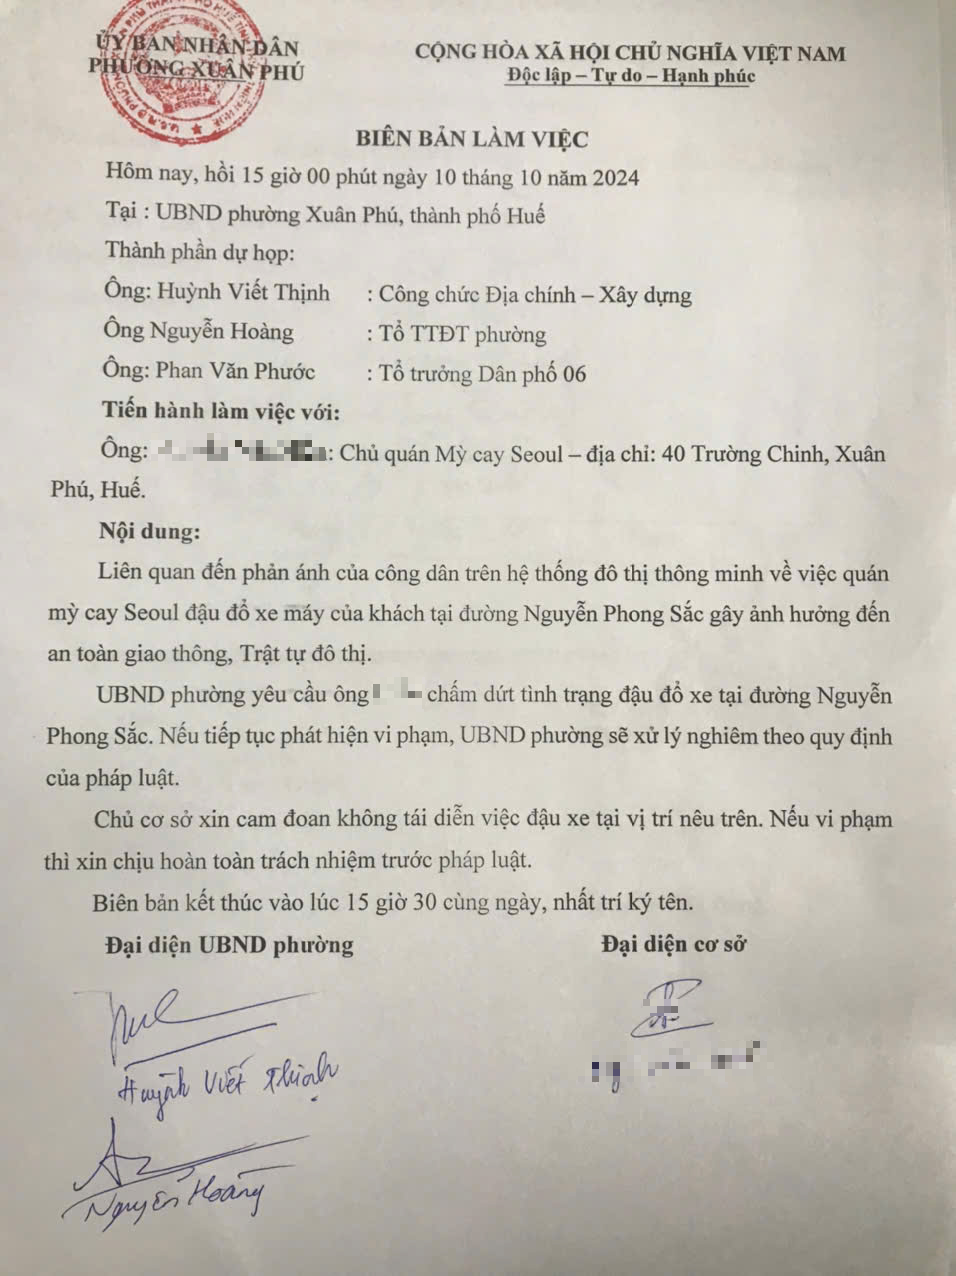 ỦY BAN NHÂN DÂN
PHƯỜNG XUÂN PHÚ
CỘNG HÒA XÃ HỘI CHỦ NGHĨA VIỆT NAM
Độc lập – Tự do – Hạnh phúc
BIÊN BẢN LÀM VIỆC
Hôm nay, hồi 15 giờ 00 phút ngày 10 tháng 10 năm 2024
Tại : UBND phường Xuân Phú, thành phố Huế
Thành phần dự họp:
Ông: Huỳnh Viết Thịnh : Công chức Địa chính – Xây dựng
Ông Nguyễn Hoàng : Tổ TTĐT phường
Ông: Phan Văn Phước : Tổ trưởng Dân phố 06
Tiến hành làm việc với:
Ông: : Chủ quán Mỳ cay Seoul – địa chỉ: 40 Trường Chinh, Xuân
Phú, Huế.
Nội dung:
Liên quan đến phản ánh của công dân trên hệ thống đô thị thông minh về việc quán
mỳ cay Seoul đậu đổ xe máy của khách tại đường Nguyễn Phong Sắc gây ảnh hưởng đến
an toàn giao thông, Trật tự đô thị.
UBND phường yêu cầu ông chấm dứt tình trạng đậu đổ xe tại đường Nguyễn
Phong Sắc. Nếu tiếp tục phát hiện vi phạm, UBND phường sẽ xử lý nghiêm theo quy định
của pháp luật.
Chủ cơ sở xin cam đoan không tái diễn việc đậu xe tại vị trí nêu trên. Nếu vi phạm
thì xin chịu hoàn toàn trách nhiệm trước pháp luật.
Biên bản kết thúc vào lúc 15 giờ 30 cùng ngày, nhất trí ký tên.
Đại diện UBND phường
Đại diện cơ sở
Huỳnh Viết Thịnh
Nguyễn Hoàng